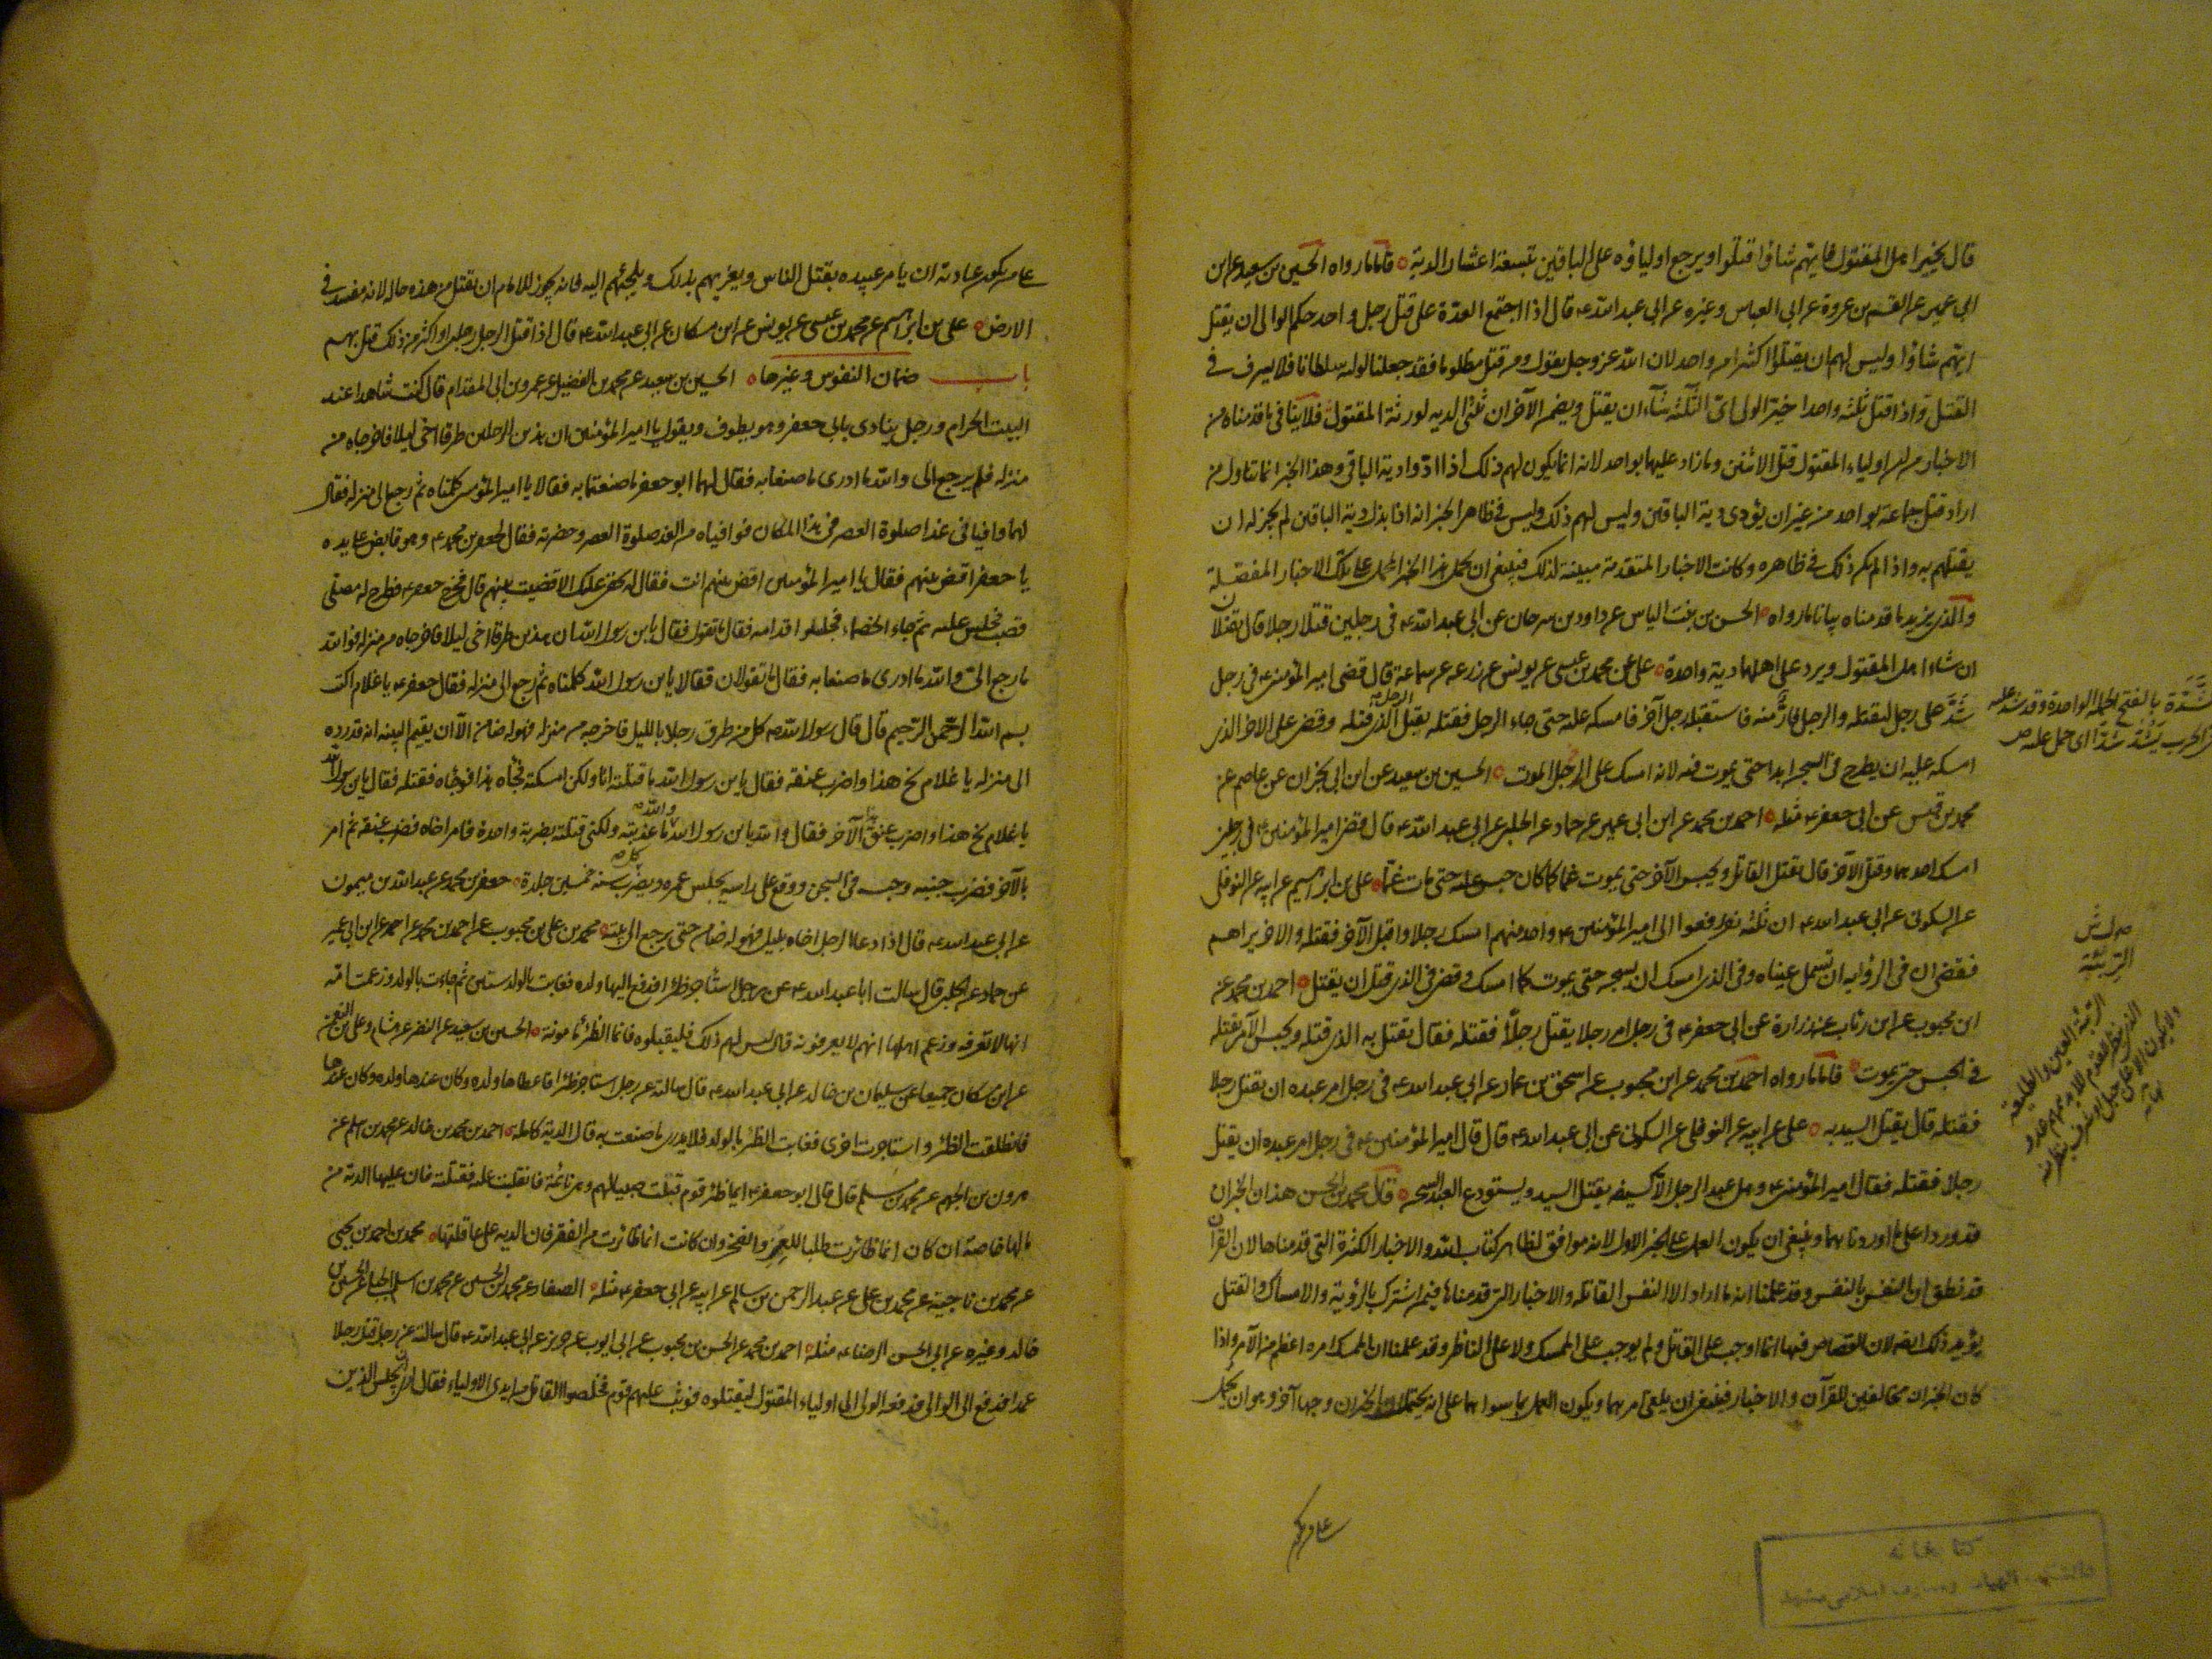 قال يخير اهل المقتول فايهم شاؤا قتلوا ويرجع اولياؤه على الباقين بتسعة اعشار الدية فاما ما رواه الحسين بن سعيد عن ابن
ابى عمير عن القسم بن عروة عن ابى العباس وغيره عن ابى عبد الله ع قال اذا اجتمع العدة على قتل رجل واحد حكم الوالى ان يقتل
ايهم شاؤا وليس لهم ان يقتلوا اكثر من واحد لان الله عز وجل يقول ومن قتل مظلوما فقد جعلنا لوليه سلطانا فلا يسرف فى
القتل واذا قتل ثلثه واحدا خير الوالى اى الثلثه شاء ان يقتل ويضمن الآخران ثلثى الديه لورثة المقتول فلا ينافى ما قدمناه من
الاخبار من ان لاولياء المقتول قتل الاثنين وما زاد عليهما بواحد لانه انما يكون لهم ذلك اذا ادوا دية الباقى وهذا الخبر انما تناول من
اراد قتل جماعة بواحد من غير ان يؤدى دية الباقين وليس لهم ذلك وليس فى ظاهر الخبر انه اذا بذل دية الباقين لم يجز له ان
يقتلهم به واذا لم يكن ذلك فى ظاهره وكانت الاخبار المتقدمة مبينة لذلك فينبغى ان يحمل هذا الخبر المجمل على تلك الاخبار المفصلة
والذى يزيد ما قدمناه بيانا ما رواه الحسن بن بنت الياس عن داود بن سرحان عن ابى عبد الله ع فى رجلين قتلا رجلا قال يقتلان
ان شاء اهل المقتول ويرد على اهلهما دية واحدة على عن محمد بن عيسى عن يونس عن زرعه عن سماعة قال قضى امير المؤمنين ع فى رجل
شد على رجل ليقتله والرجل فار منه فاستقبله رجل آخر فامسكه عليه حتى جاء الرجل فقتله يقتل الرجل الذى قتله وقضى على الاخر الذى
امسكه عليه ان يطرح فى السجن ابدا حتى يموت فيه لانه امسك على الرجل الموت الحسين بن سعيد عن ابن ابى نجران عن عاصم عن
محمد بن قيس عن ابى جعفر ع مثله احمد بن محمد عن ابن ابى عمير عن حماد عن الحلبى عن ابى عبد الله ع قال قضى امير المؤمنين ع فى رجلين
امسك احدهما وقتل الآخر قال يقتل القاتل ويحبس الآخر حتى يموت غما كما كان حبس عليه حتى مات غما على بن ابرهيم عن ابيه عن النوفلى
عن السكونى عن ابى عبد الله ع ان ثلثه نفر رفعوا الى امير المؤمنين ع واحد منهم امسك رجلا واقبل الآخر فقتله والاخر يراهم
فقضى ان فى الرؤية ان تسمل عيناه وفى الذى امسك ان يسجن حتى يموت كما امسك وقضى فى الذى قتل ان يقتل احمد بن محمد عن
ابن محبوب عن ابن رئاب عن زرارة عن ابى جعفر ع فى رجل امر رجلا يقتل رجلا فقتله فقال يقتل به الذى قتله ويحبس الآمر بقتله
فى الحبس حتى يموت فاما ما رواه احمد بن محمد عن ابن محبوب عن اسحق بن عمار عن ابى عبد الله ع فى رجل امر عبده ان يقتل رجلا
فقتله قال يقتل السيد به على عن ابيه عن النوفلى عن السكونى عن ابى عبد الله ع قال قال امير المؤمنين ع فى رجل امر عبده ان يقتل
رجلا فقتله فقال امير المؤمنين ع وهل عبد الرجل الا كسيفه يقتل السيد ويستودع العبد السجن قال محمد بن الحسن هذان الخبران
قد وردا على ما اوردناهما وينبغى ان يكون العمل على الخبر الاول لانه موافق لظاهر كتاب الله والاخبار الكثيرة التى قدمناها لان القرآن
قد نطق ان النفس بالنفس وقد علمنا انه ما اراد الا النفس القاتله والاخبار التى قدمناها فيمن اشترك بالرؤية والامساك والقتل
يؤيد ذلك ايضا لان القصاص فيها انما اوجب على القاتل ولم يوجب على الممسك ولا على الناظر وقد علمنا ان الممسك امره اعظم من الآمر واذا
كان الخبران مخالفين للقرآن والاخبار فينبغى ان يلغى امرهما ويكون العمل بما سواهما على انه يحتمل الخبران وجها آخر وهو ان يحمل
شدة بالفتح الحملة الواحدة وقد شد عليه
فى الحرب يشد شدا اى حمل عليه ص
الربئة
الربئة العين والطليعة
الذى ينظر للقوم لئلا يدهمهم عدو
ولا يكون الا على جبل او شرف ينظر منه
نهاية
على من يكون
على من يكون عادته ان يامر عبيده بقتل الناس ويغريهم بذلك ويلجئهم اليه فانه يجوز للامام ان يقتل من هذه حاله لانه مفسد فى
الارض على بن ابرهيم عن محمد بن عيسى عن يونس عن ابن مسكان عن ابى عبد الله ع قال اذا قتل الرجل رجلين او اكثر من ذلك قتل بهم
باب ضمان النفوس وغيرها الحسين بن سعيد عن محمد بن الفضيل عن عمرو بن ابى المقدام قال كنت شاهدا عند
البيت الحرام ورجل ينادى بابى جعفر وهو يطوف ويقول يا امير المؤمنين ان هذين الرجلين طرقا اخى ليلا فاخرجاه من
منزله فلم يرجع الى والله ما ادرى ما صنعا به فقال لهما ابو جعفر ما صنعتما به فقالا يا امير المؤمنين كلمناه ثم رجع الى منزله فقال
لهما وافيانى غدا صلوة العصر فى هذا المكان فوافياه من الغد صلوة العصر وحضرته فقال لجعفر بن محمد ع وهو قابض على يده
يا جعفر اقض بينهم فقال يا امير المؤمنين اقض بينهم انت فقال له بحقى عليك الا قضيت بينهم قال فخرج جعفر ع فطرح له مصلى
قصب فجلس عليه ثم جاء الخصماء فجلسوا قدامه فقال ما تقول فقال يا بن رسول الله ان هذين طرقا اخى ليلا فاخرجاه من منزله فو الله
ما رجع الى و والله ما ادرى ما صنعا به فقال ما تقولان فقالا يا بن رسول الله كلمناه ثم رجع الى منزله فقال جعفر ع يا غلام اكتب
بسم الله الرحمن الرحيم قال قال رسول الله ص كل من طرق رجلا بالليل فاخرجه من منزله فهو له ضامن الا ان يقيم البينه انه قد رده
الى منزله يا غلام نح هذا واضرب عنقه فقال يا بن رسول الله ما قتلته انا ولكن امسكته فجاء هذا فوجاه فقتله فقال انا بن رسول الله
يا غلام نح هذا واضرب عنق الآخر فقال والله يا بن رسول الله والله ما عذبته ولكنى قتلته بضربة واحدة فامر اخاه فضرب عنقه ثم امر
بالآخر فضرب جنبيه وحبسه فى السجن ووقع على راسه يحبس عمره ويضرب كل سنه خمسين جلدة جعفر بن محمد عن عبد الله بن ميمون
عن ابى عبد الله ع قال اذا دعا الرجل اخاه بليل فهو له ضامن حتى يرجع الى بيته محمد بن على بن محبوب عن احمد بن محمد عن ابن ابى عمير
عن حماد عن الحلبى قال سالت ابا عبد الله ع عن رجل استاجر ظئرا فدفع اليها ولده فغابت بالولد سنين ثم جاءت بالولد وزعمت امه
انها لا تعرفه وزعم اهلها انهم لا يعرفونه قال ليس لهم ذلك فليقبلوه فانما الظئر مامونة الحسين بن سعيد عن النضر عن هشام وعلى بن النعمن
عن ابن مسكان جميعا عن سليمان بن خالد عن ابى عبد الله ع قال سالته عن رجل استاجر ظئرا فاعطاها ولده وكان عندها
فانطلقت الظئر واستاجرت اخرى فغابت الظئر بالولد فلا يدرى ما صنعت به قال الدية كامله احمد بن محمد بن خالد عن محمد بن اسلم عن
هرون بن الجهم عن محمد بن مسلم قال قال ابو جعفر ع ايما ظئر قوم قتلت صبيا لهم وهى نائمة فانقلبت عليه فقتلته فان عليها الدية من
مالها خاصة ان كان انما ظائرت طلبا للعز والفخر وان كانت انما ظائرت من الفقر فان الديه على عاقلتها محمد بن احمد بن يحيى
عن محمد بن ناجية عن محمد بن على عن عبد الرحمن بن سالم عن ابيه عن ابى جعفر ع مثله الصفار عن محمد بن الحسين عن محمد بن اسلم الجبلى عن الحسين بن
خالد وغيره عن ابى الحسن الرضا ع مثله احمد بن محمد عن الحسن بن محبوب عن ابى ايوب عن حريز عن ابى عبد الله ع قال سالته عن رجل قتل رجلا
عمدا فدفع الى الوالى فدفعه الوالى الى اولياء المقتول ليقتلوه فوثب عليهم قوم فخلصوا القاتل من ايدى الاولياء فقال ارى ان يحبس الذين